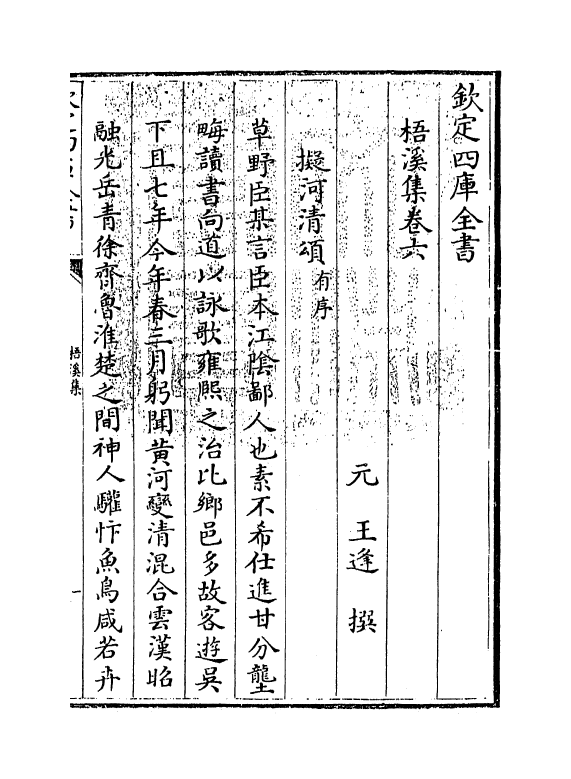 欽定四庫全書
梧溪集卷六
元 王逢 撰
擬河清頌有序
草野臣某言臣本江陰鄙人也素不希仕進甘分壟
畮讀書向道以詠歌雍熙之治比鄉邑多故客遊吳
下且七年今年春三月躬聞黄河變清混合雲漢昭
融光岳青徐齊魯淮楚之間神人驩忭魚鳥咸若卉
梧溪集
一